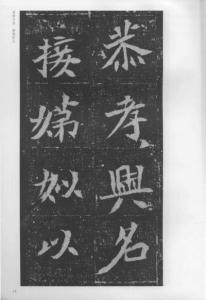 恭孝興名
接娣姒以